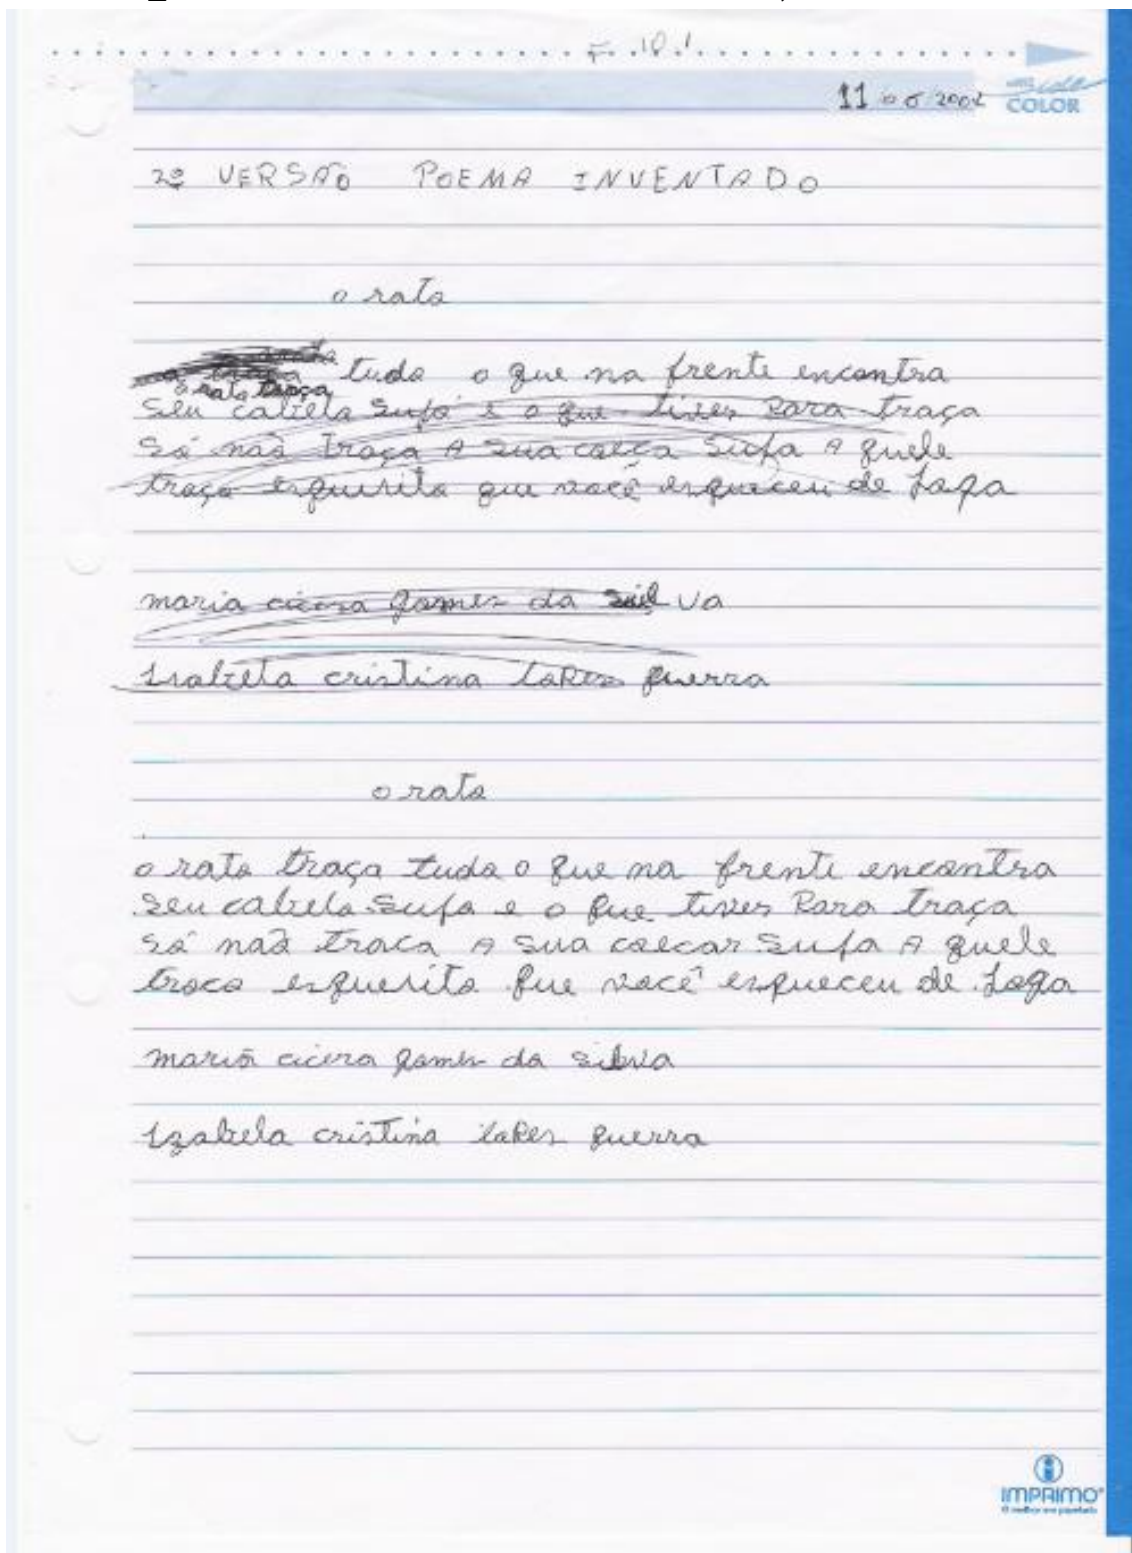 11 06 2002
COLOR
2º VERSÃO POEMA INVENTADO
o rato
tudo o que na frente encontra
o rato traça
seu cabelo sufo e o que tives Para traça
Só não traça A sua calça sufa A quele
traço esquisito que você esqueceu de Japa
maria cicera gomes da silva
Izabela cristina lopes guerra
o rato
o rato traça tudo o que na frente encontra
seu cabelo sufo e o que tives Para traça
só não traca A sua calcar sufa A quele
traco esquerito que você esqueceu de Joga
maria cicera gomes da silvia
Izabela cristina lopes guerra
IMPRIMO